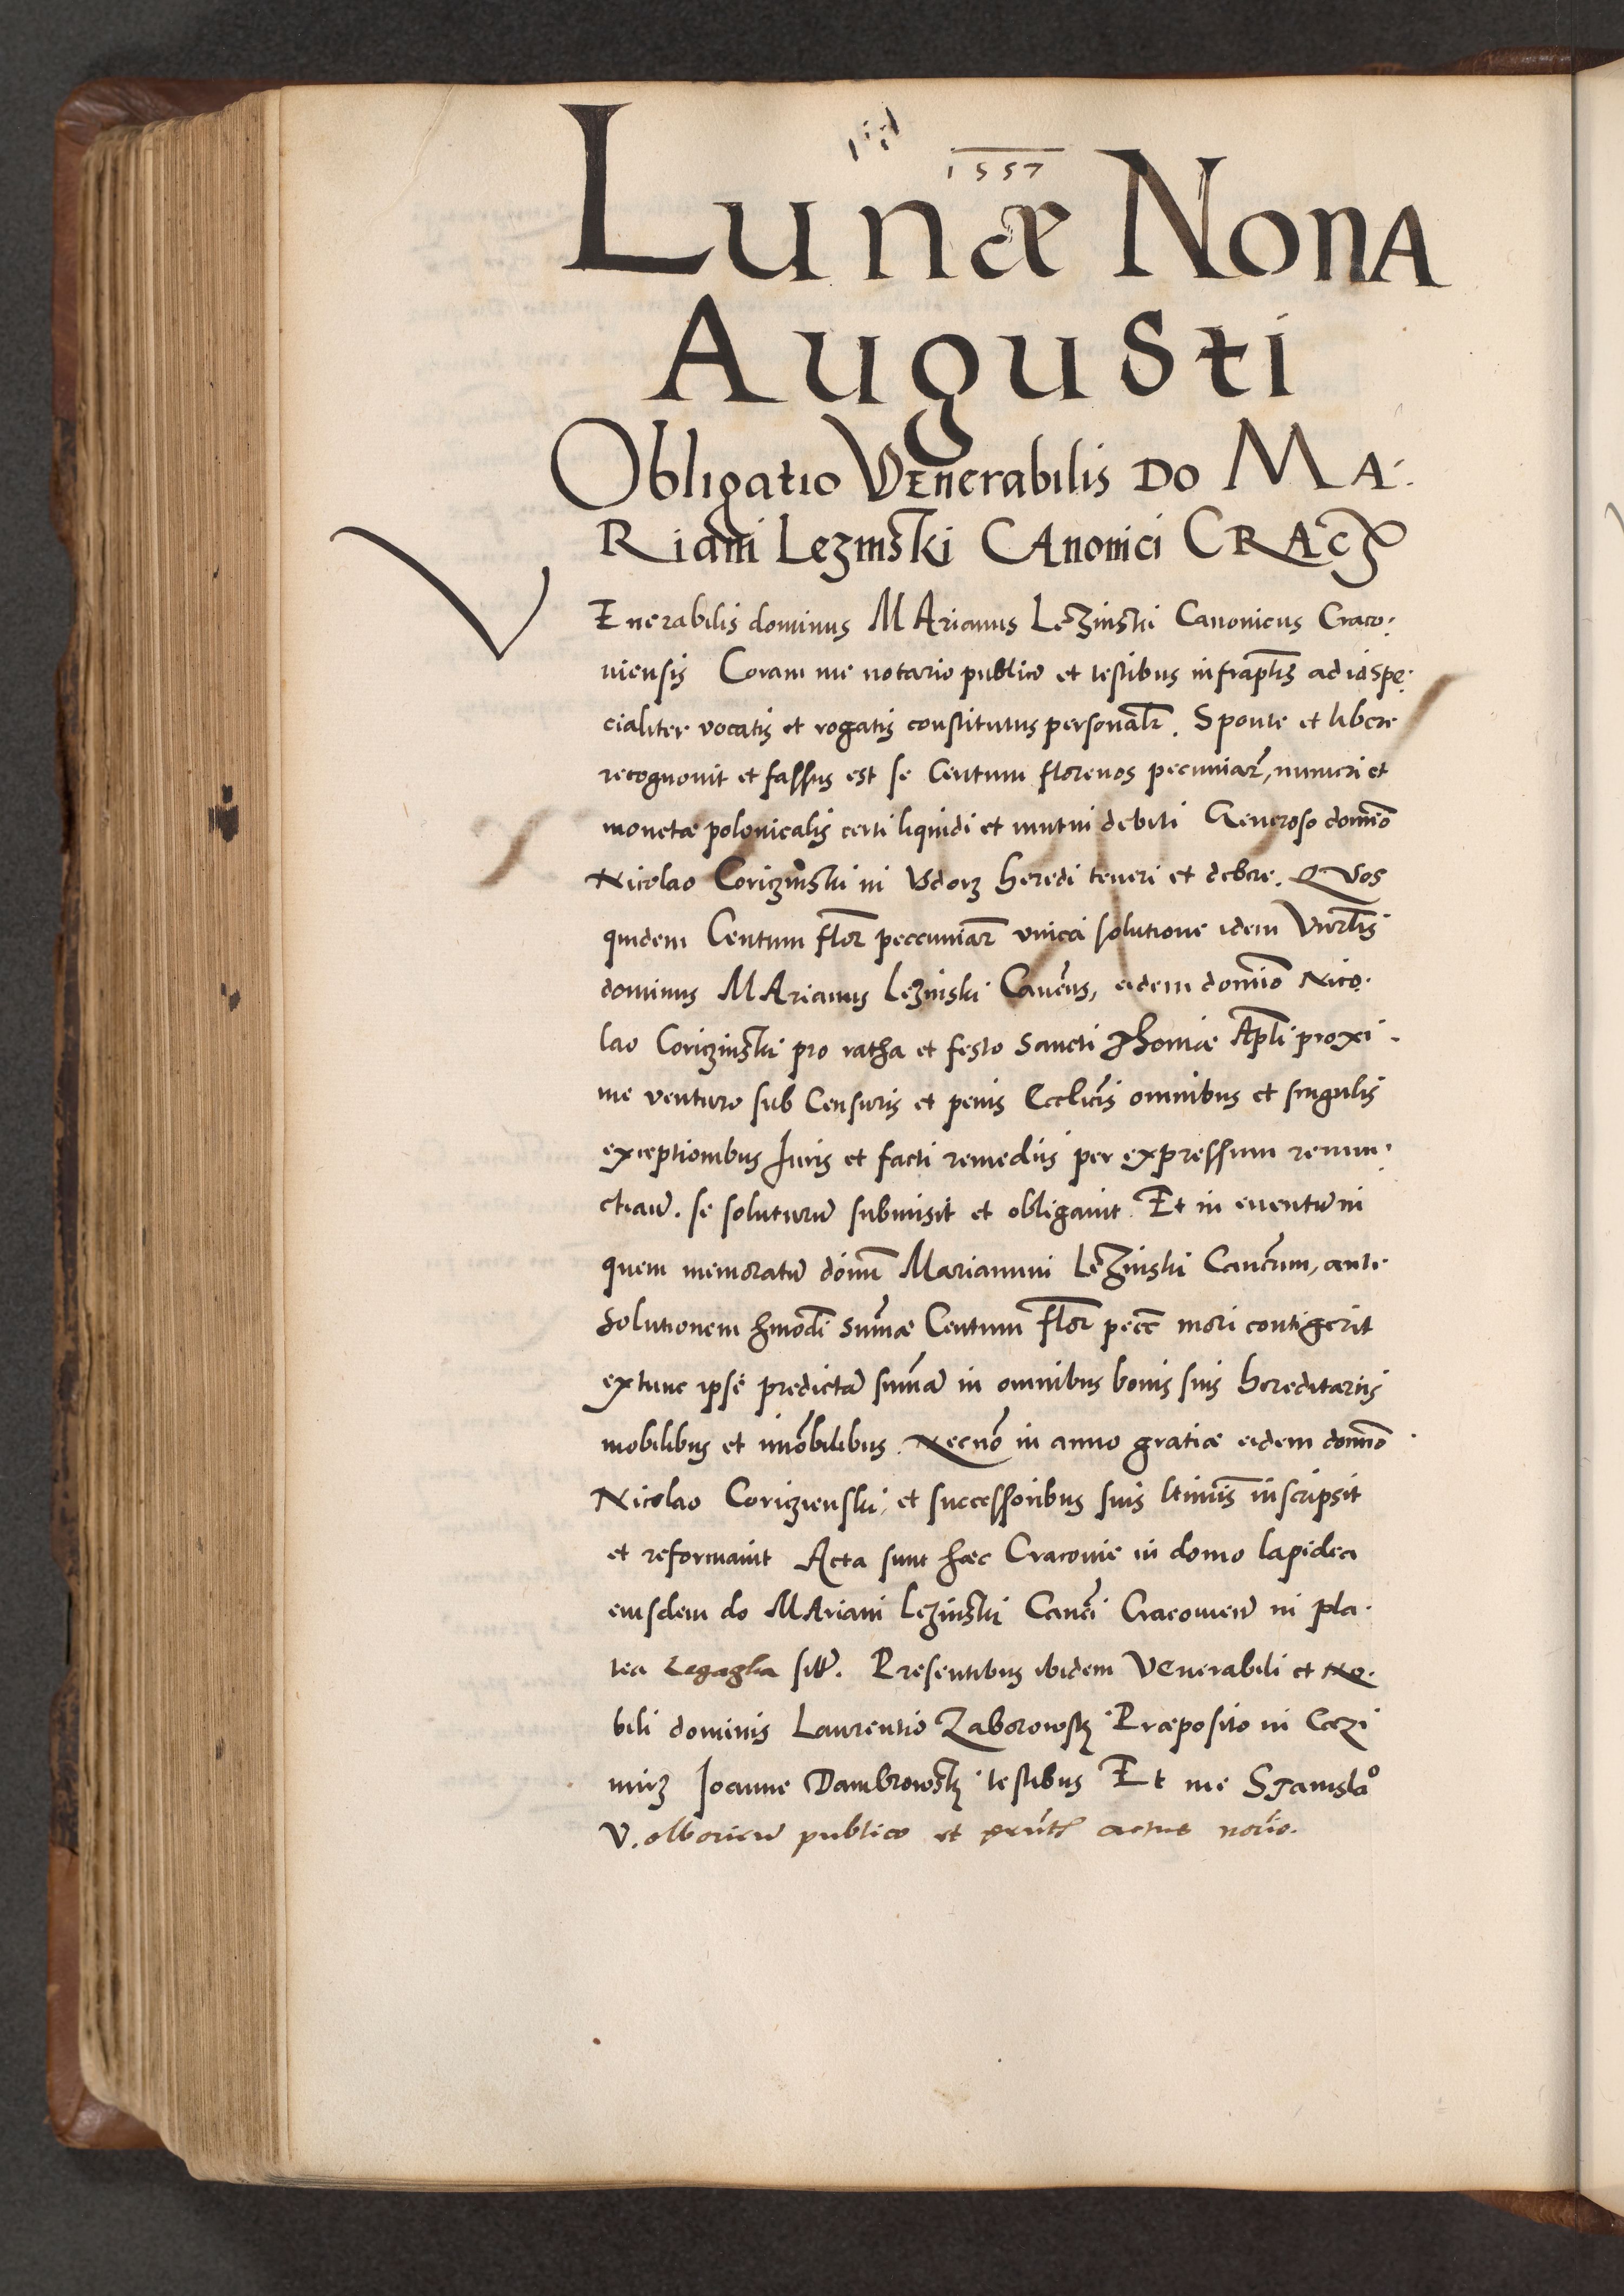 1557
Lunæ Nona
Augusti
Obligatio Venerabilis Do Ma:
Riani Lezinski Canonici Crac
VEnerabilis dominus MArianus Lezinski Canonicus Craco:
uiensis Coram me notario publico et testibus infraptis ad id spe:
cialiter vocatis et rogatis constitutus personalr. Sponte et libere
recognouit et fassus est se Centum florenos pecuniar, numeri et
monetæ polonicalis certi liquidi et mutui debiti Generoso domio
Nicolao Coriczinski in Vdorz heredi teneri et debere. QVos
quidem Centum flor peccuniar vnica solutione idem Vnrlis
dominus MArianus Lezinski Cancus, eidem domino Nico.
lao Coriczinski pro ratha et festo Sancti Thomæ Apli proxi.
me venturo sub Censuris et penis Ecclicis omnibus et singulis
exceptionibus Iuris et facti remediis per expressum renun:
ctiaū. se soluturū submisit et obligauit. Et in euentū in
quem memoratū donū Marianum Lezinski Cancum, ante
solutionem hmodi sumæ Centum flor pecc mori contigerit
extunc ipse predictā sumā in omnibus bonis suis hereditariis
mobilibus et imobilibus. Necnō in anno gratiæ eidem domio
Nicolao Coriczienski, et successoribus suis ltimis inscripsit
et reformauit Acta sunt hæc Cracouie in domo lapidea
eiusdem do MAriani Lezinski Canci Cracouień in pla.
tea sitt. Presentibus ibidem VEnerabili et No.
bili dominis Laurentio Zaborowsky Præposito in Cazi
mirz Joanne Dambrowsky testibus Et me Stanislaº
publico et actus notio.